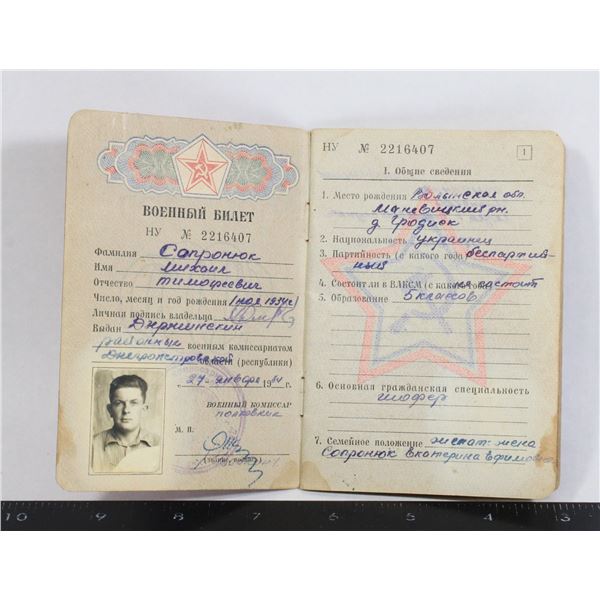 ВОЕННЫЙ БИЛЕТ
НУ № 2216407
Фамилия Сапронюк
Имя Михаил
Отчество Тимофеевич
Число, месяц и год рождения 1 1934 г
Личная подпись владельца
Выдан Дзержинский
районным военным комиссариатом
Днепропетровской области (республики)
27 января 19 г.
ВОЕННЫЙ КОМИССАР
полковник
М. П.
НУ № 2216407 1
I. Общие сведения
1. Место рождения Волынская обл.
Маневицкий рн.
д. Градиск
2. Национальность украинец
3. Партийность (с какого года) беспартий-
ный
4. Состоит ли в ВЛКСМ (с какого года) не состоит
5. Образование 5 классов
6. Основная гражданская специальность
шофер
7. Семейное положение женат - жена
Сопронюк Екатерина Ефимовна
10 9 8 7 6 5 4 3